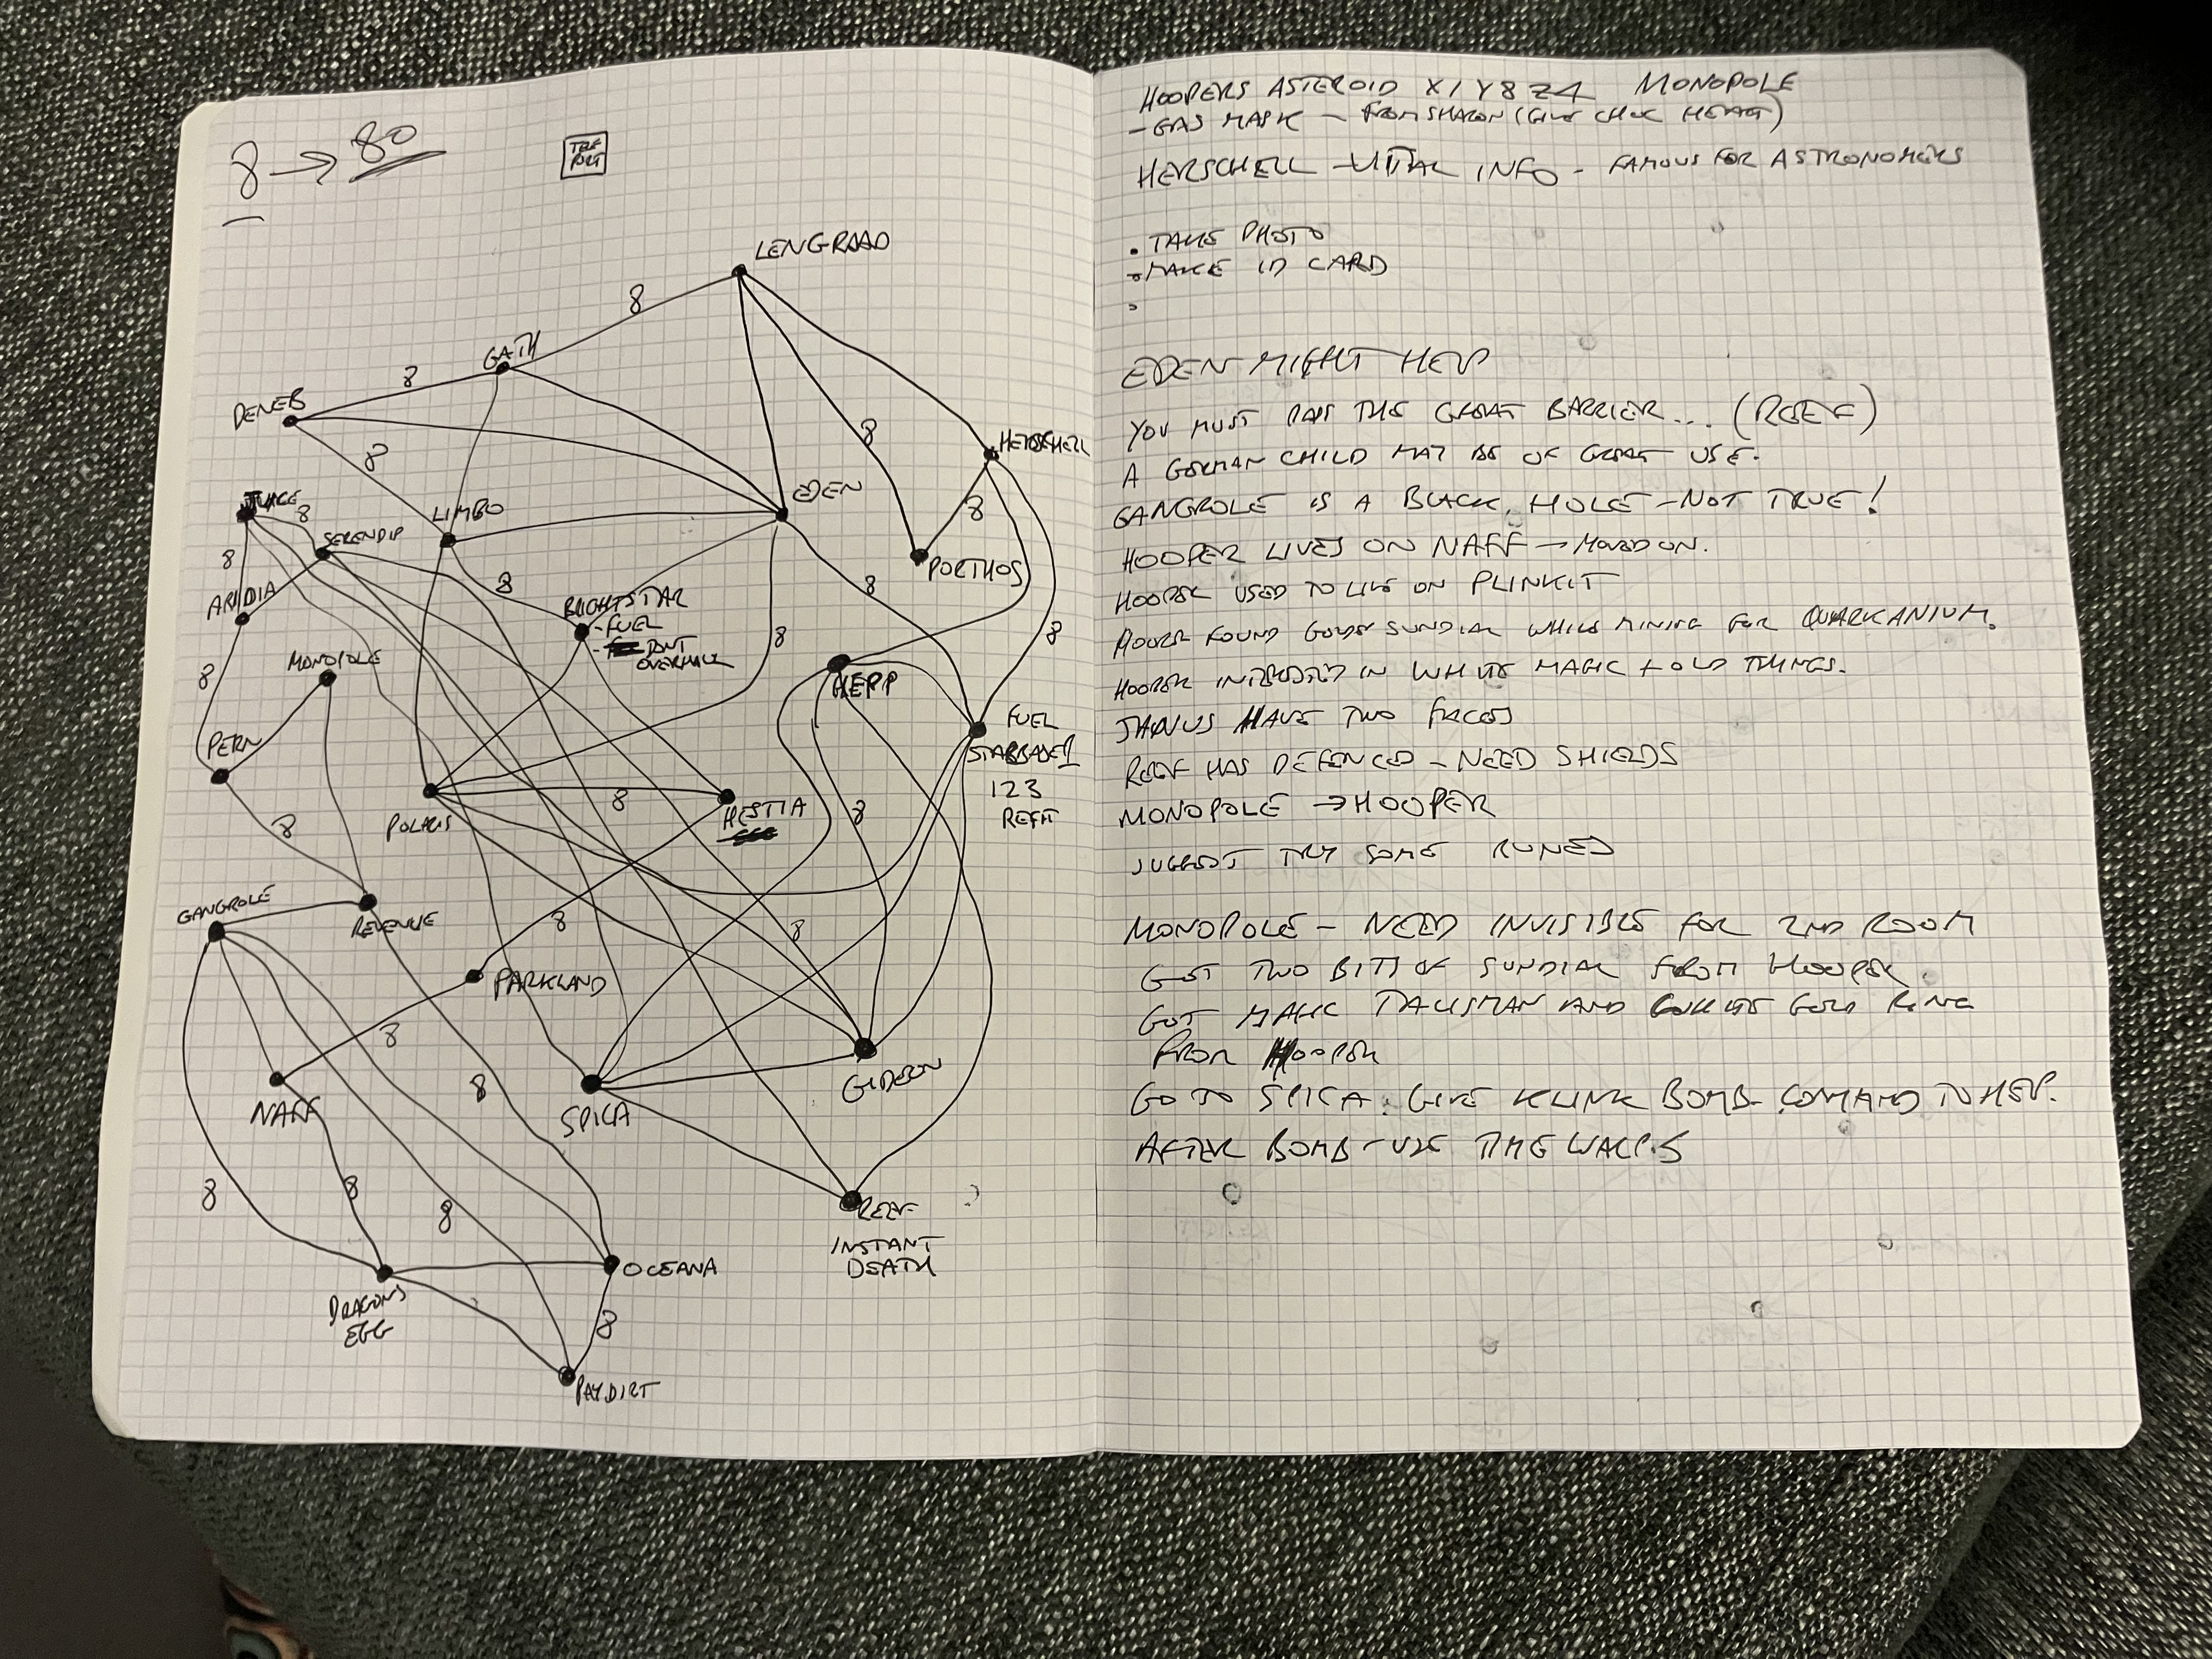 8 → 80
LENGRAAD
8
GATH
8
DENEB
8
8
HERSCHELL
EDEN
8
8
LIMBO
SERENDIP
8
8
PORTHOS
ARIDIA
8
BRIGHTSTAR
-FUEL
DONT
OVERHAUL
8
8
8
MONOPOLE
HEPP
FUEL
STARBASE 1
123
REFIT
PERN
8
HESTIA
POLARIS
8
8
GANGROLE
REVENUE
8
8
PARKLAND
8
8
NAFF
SPICA
GIDEON
8
8
8
REEF
INSTANT
DEATH
OCEANA
DRAGONS
EGG
8
PAYDIRT
HOOPERS ASTEROID X1Y8Z4 MONOPOLE
- GAS MASK - FROM SHARON (GIVE CHOC HEART)
HERSCHELL - VITAL INFO - FAMOUS FOR ASTRONOMERS
• TAKE PHOTO
• MAKE ID CARD
EDEN MIGHT HELP
YOU MUST PASS THE GREAT BARRIER... (REEF)
A GERMAN CHILD MAY BE OF GREAT USE.
GANGROLE IS A BLACK HOLE - NOT TRUE!
HOOPER LIVES ON NAFF → MOVED ON.
HOOPER USED TO LIVE ON PLINKIT
HOOPER FOUND GOLDEN SUNDIAL WHILE MINING FOR QUARKANIUM.
HOOPER INTERESTED IN WHITE MAGIC + OLD THINGS.
JANUS HAVE TWO FACES
REEF HAS DEFENCES - NEED SHIELDS
MONOPOLE → HOOPER
SUGGEST TRY SOME RUNES
MONOPOLE - NEED INVISIBLE FOR 2ND ROOM
GET TWO BITS OF SUNDIAL FROM HOOPER.
GOT MAGIC TALISMAN AND GOLD RING
FROM HOOPER
GO TO SPICA. GIVE KLINK BOMB. COMMAND TO HEPP.
AFTER BOMB - USE TIME WARPS